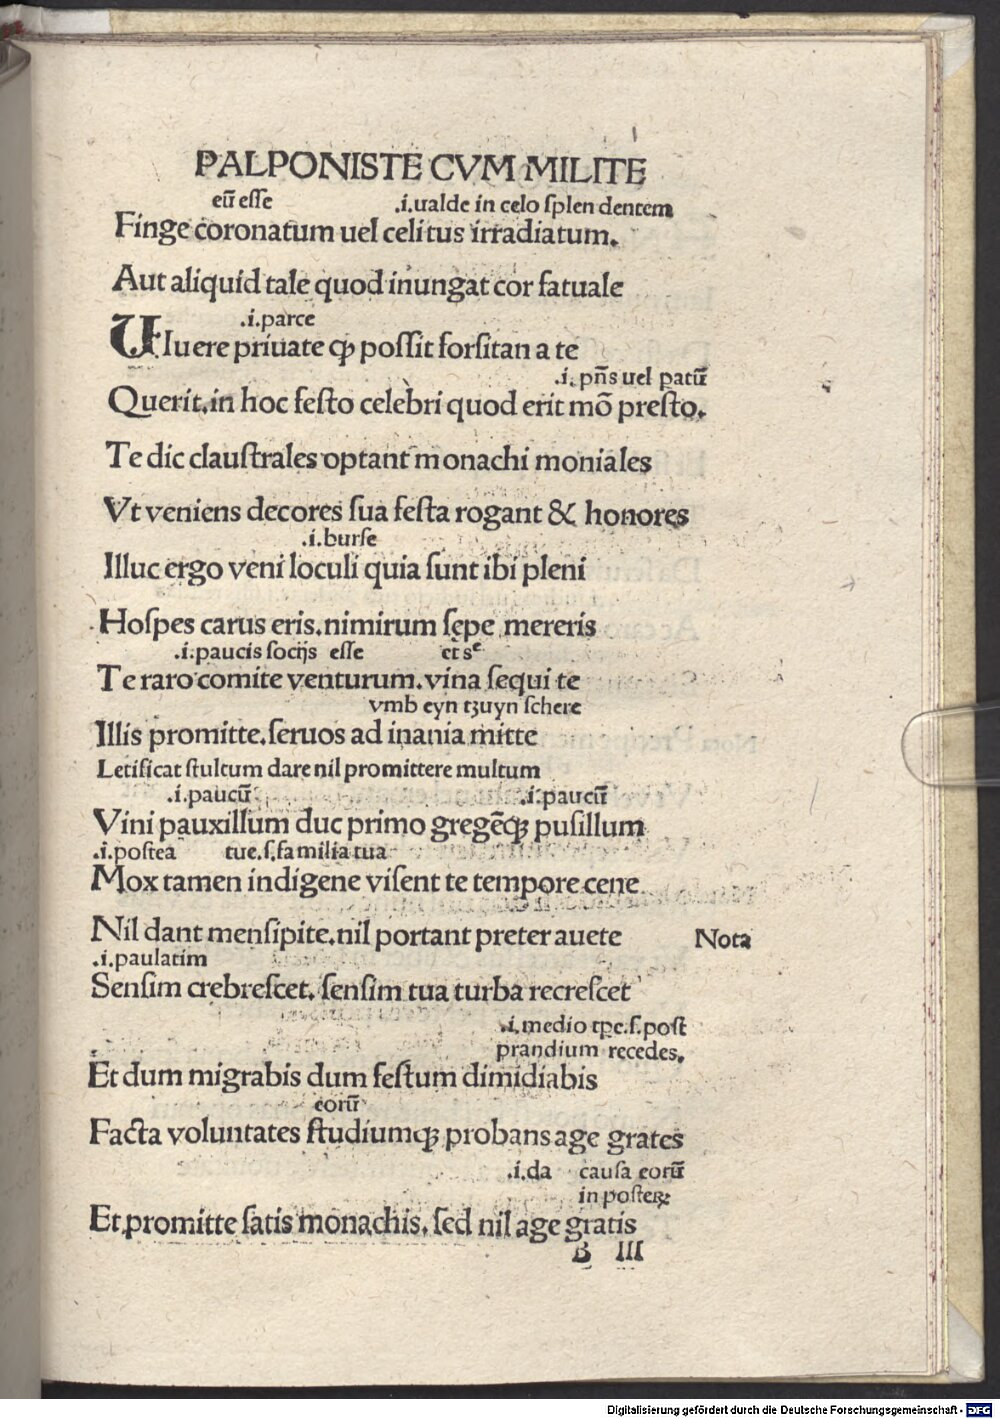 PALPONISTE CVM MILITE
eū eſſe .i.ualde in celo ſplen dentem
Finge coronatum uel celitus irradiatum.
Aut aliquid tale quod inungat cor fatuale
.i.parce
VIuere priuate ꝙ poſſit forſitan a te
.i. pn̄s uel patū
Querit.in hoc feſto celebri quod erit mō preſto.
Te dic clauſtrales optant monachi moniales
Vt veniens decores ſua feſta rogant & honores
.i.burſe
Illuc ergo veni loculi quia ſunt ibi pleni
Hoſpes carus eris.nimirum ſępe mereris
.i.paucis ſocijs eſſe et sᵉ
Te raro comite venturum.vina ſequi te
vmb eyn tzuyn ſchere
Illis promitte.ſeruos ad inania mitte
Letificat ſtultum dare nil promittere multum
.i.paucū .i.paucū
Vini pauxillum duc primo gregēqꝫ puſillum
.i.poſtea tue.ſ.familia tua
Mox tamen indigene viſent te tempore cene
Nil dant menſipite.nil portant preter auete Nota
.i.paulatim
Senſim crebreſcet. ſenſim tua turba recreſcet
.i.medio tp̄e.ſ.poſt
prandium recedes.
Et dum migrabis dum feſtum dimidiabis
eorū
Facta voluntates ſtudiumqꝫ probans age grates
.i.da cauſa eorū
in poſteꝝ
Et promitte ſatis monachis. ſed nil age gratis
B III
Digitalisierung gefördert durch die Deutsche Forschungsgemeinschaft - DFG